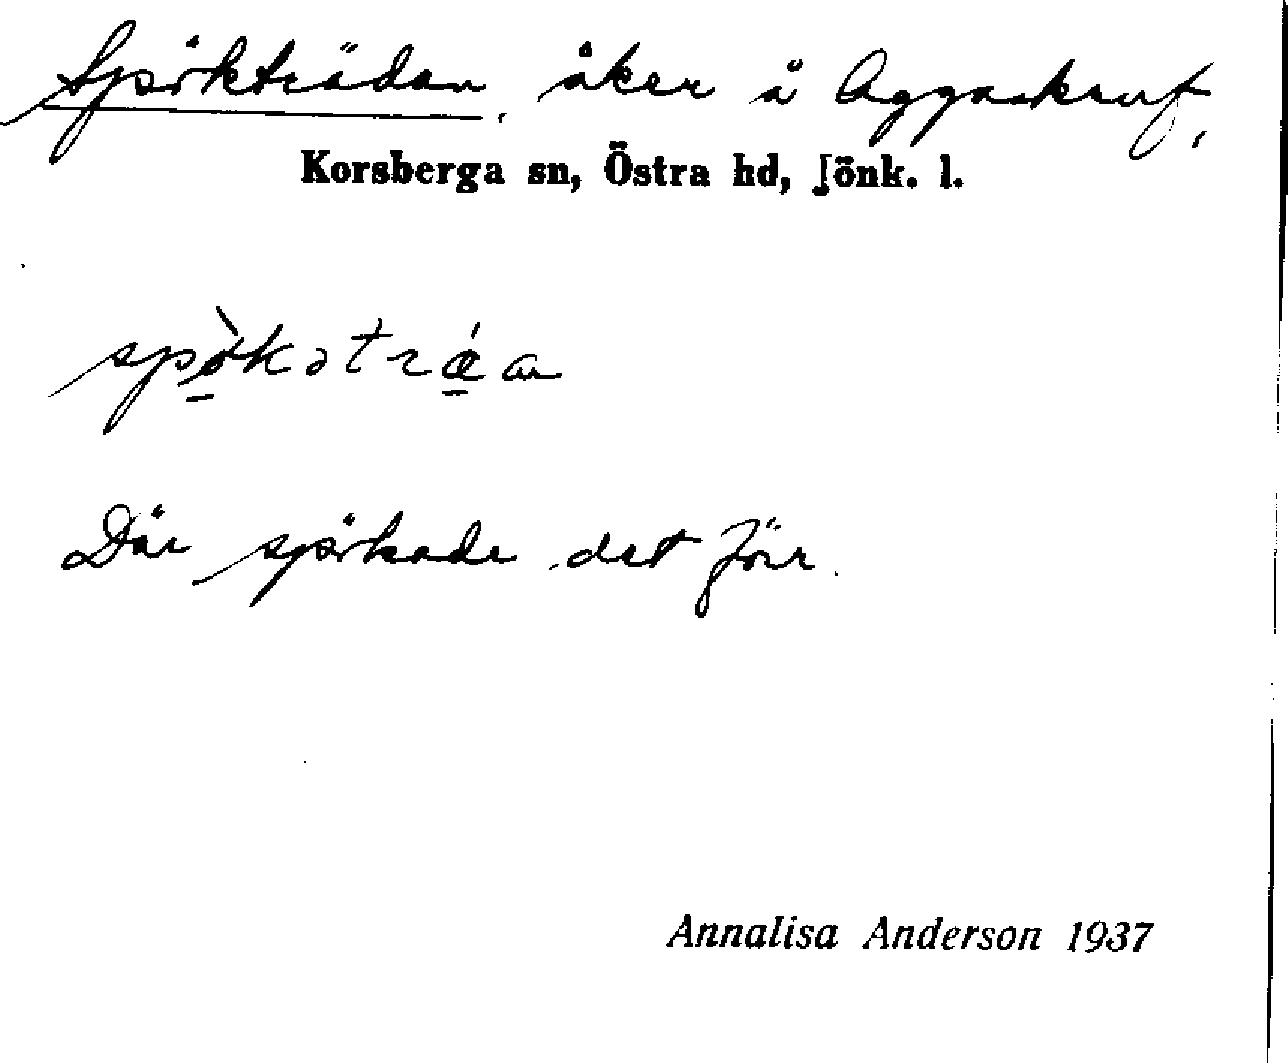 Spökträdan, åker å Aggaskruf,
Korsberga sn, Östra hd, Jönk. l.
spø̀kətrǽan
Där spökade det förr.
Annalisa Anderson 1937